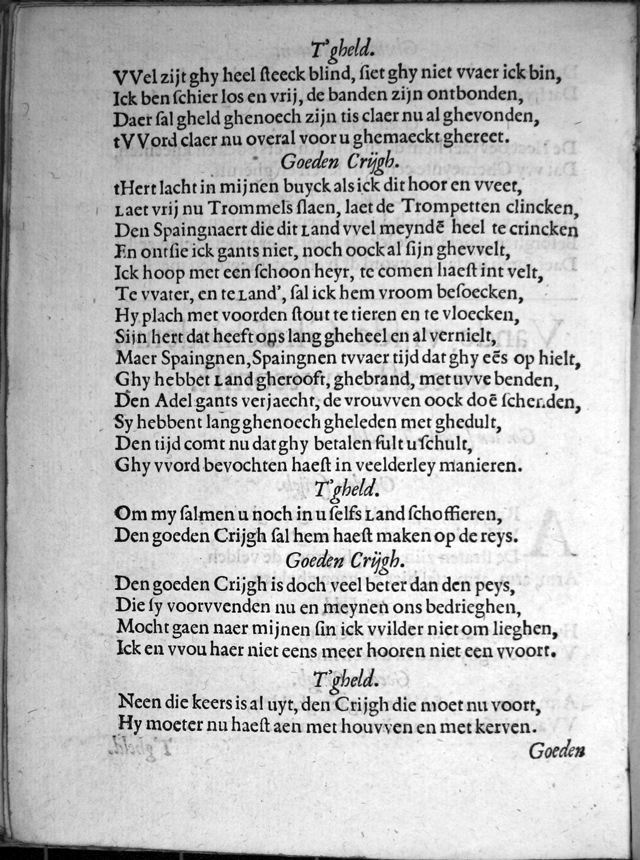 T'gheld.
VVel zijt ghy heel ſteeck blind, ſiet ghy niet vvaer ick bin,
Ick ben ſchier los en vrij, de banden zijn ontbonden,
Daer ſal gheld ghenoech zijn tis claer nu al ghevonden,
tVVord claer nu overal voor u ghemaeckt ghereet.
Goeden Crijgh.
tHert lacht in mijnen buyck als ick dit hoor en vveet,
Laet vrij nu Trommels ſlaen, laet de Trompetten clincken,
Den Spaingnaert die dit Land vvel meyndẽ heel te crincken
En ontſie ick gants niet, noch oock al ſijn ghevvelt,
Ick hoop met een ſchoon heyr, te comen haeſt int velt,
Te vvater, en te Land', ſal ick hem vroom beſoecken,
Hy plach met voorden ſtout te tieren en te vloecken,
Sijn hert dat heeft ons lang gheheel en al vernielt,
Maer Spaingnen, Spaingnen tvvaer tijd dat ghy eẽs op hielt,
Ghy hebbet Land gherooft, ghebrand, met uvve benden,
Den Adel gants verjaecht, de vrouvven oock doẽ ſchenden,
Sy hebbent lang ghenoech gheleden met ghedult,
Den tijd comt nu dat ghy betalen ſult u ſchult,
Ghy vvord bevochten haeſt in veelderley manieren.
T'gheld.
Om my ſalmen u noch in u ſelfs Land ſchoffieren,
Den goeden Crijgh ſal hem haeſt maken op de reys.
Goeden Crijgh.
Den goeden Crijgh is doch veel beter dan den peys,
Die ſy voorvvenden nu en meynen ons bedrieghen,
Mocht gaen naer mijnen ſin ick vvilder niet om lieghen,
Ick en vvou haer niet eens meer hooren niet een vvoort.
T'gheld.
Neen die keers is al uyt, den Crijgh die moet nu voort,
Hy moeter nu haeſt aen met houvven en met kerven.
Goeden